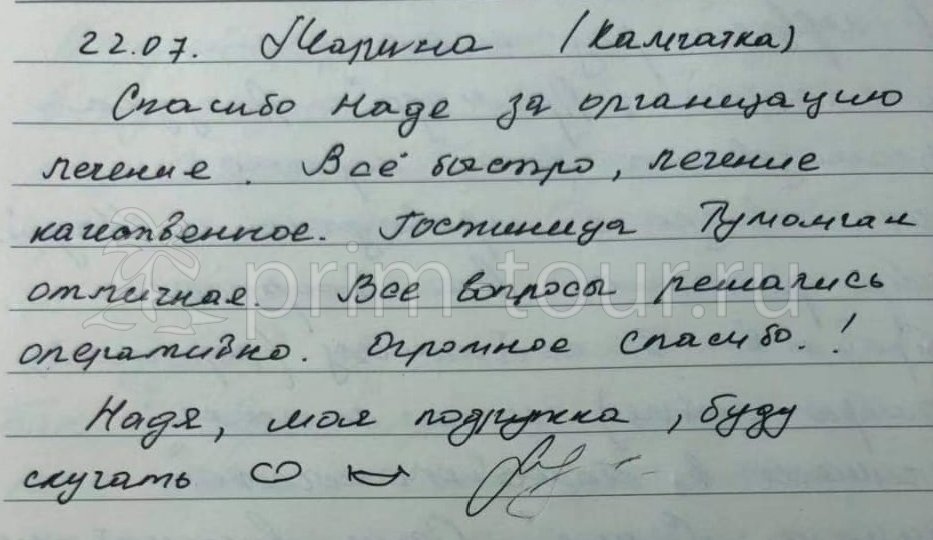 22.07. Марина (Камчатка)
Спасибо Наде за организацию
лечение. Всё быстро, лечение
качественное. Гостиница Тумомган
отличная. Все вопросы решались
оперативно. Огромное спасибо.!
Надя, моя подружка, буду
скучать
prim-tour.ru